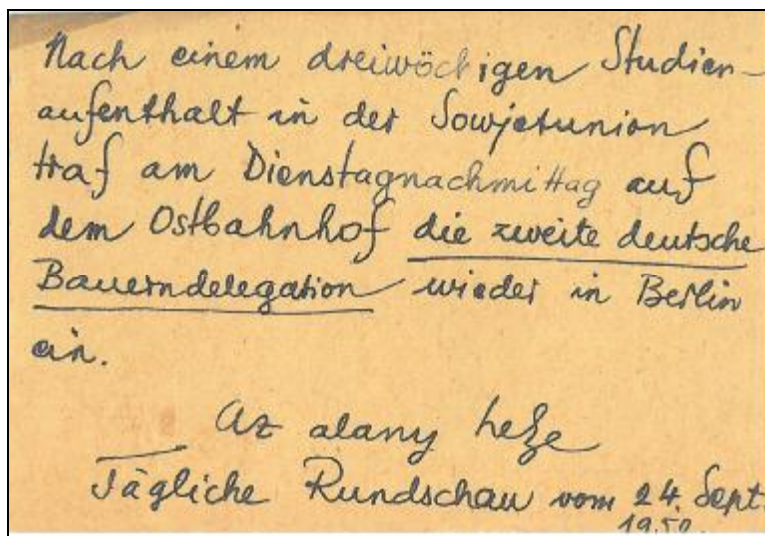 Nach einem dreiwöchigen Studien-
aufenthalt in der Sowjetunion
traf am Dienstagnachmittag auf
dem Ostbahnhof die zweite deutsche
Bauerndelegation wieder in Berlin
ein.
Az alany helye
Tägliche Rundschau vom 24. Sept.
1950.